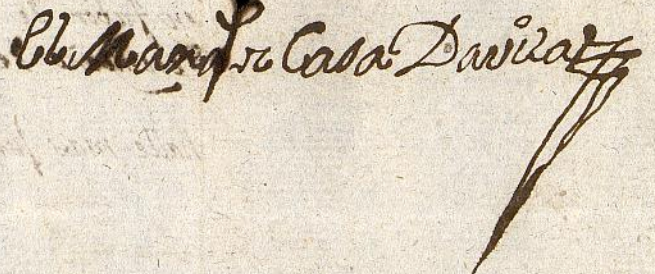 El Marqs de Casa Davila